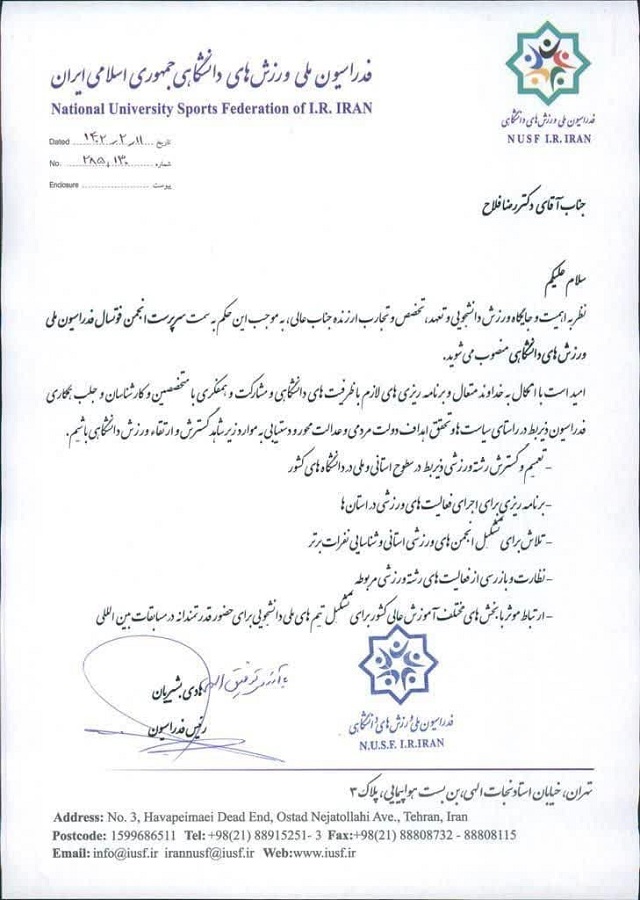 فدراسیون ملی ورزش های دانشگاهی جمهوری اسلامی ایران
National University Sports Federation of I.R. IRAN
فدراسیون ملی ورزش های دانشگاهی
NUSF I.R. IRAN
Dated ۱۴۰۲-۲-۱۱ تاریخ
No. ۲۸۵،۱۳۰ شماره
Enclosure پیوست
جناب آقای دکتر رضا فلاح
سلام علیکم
نظر به اهمیت و جایگاه ورزش دانشجویی و تعهد، تخصص و تجارب ارزنده جناب عالی، به موجب این حکم به سمت سرپرست انجمن فوتسال فدراسیون ملی
ورزش های دانشگاهی منصوب می شوید.
امید است با اتکال به خداوند متعال و برنامه ریزی های لازم با ظرفیت های دانشگاهی و مشارکت و همفکری با متخصصین و کارشناسان و جلب همکاری
فدراسیون ذیربط در راستای سیاست ها و تحقق اهداف دولت مردمی و عدالت محور و دستیابی به موارد زیر شاهد گسترش و ارتقاء ورزش دانشگاهی باشیم.
- تعمیم و گسترش رشته ورزشی ذیربط در سطوح استانی و ملی در دانشگاه های کشور
- برنامه ریزی برای اجرای فعالیت های ورزشی در استان ها
- تلاش برای تشکیل انجمن های ورزشی استانی و شناسایی نفرات برتر
- نظارت و بازرسی از فعالیت های رشته ورزشی مربوطه
- ارتباط موثر با بخش های مختلف آموزش عالی کشور برای تشکیل تیم های ملی دانشجویی برای حضور قدرتمندانه در مسابقات بین المللی
با آرزوی توفیق الهی
هادی بشیریان
رئیس فدراسیون
فدراسیون ملی ورزش های دانشگاهی
N.U.S.F. I.R.IRAN
تهران، خیابان استاد نجات الهی، بن بست هواپیمایی، پلاک ۳
Address: No. 3, Havapeimaei Dead End, Ostad Nejatollahi Ave., Tehran, Iran
Postcode: 1599686511 Tel:+98(21) 88915251- 3 Fax:+98(21) 88808732 - 88808115
Email: info@iusf.ir irannusf@iusf.ir Web:www.iusf.ir